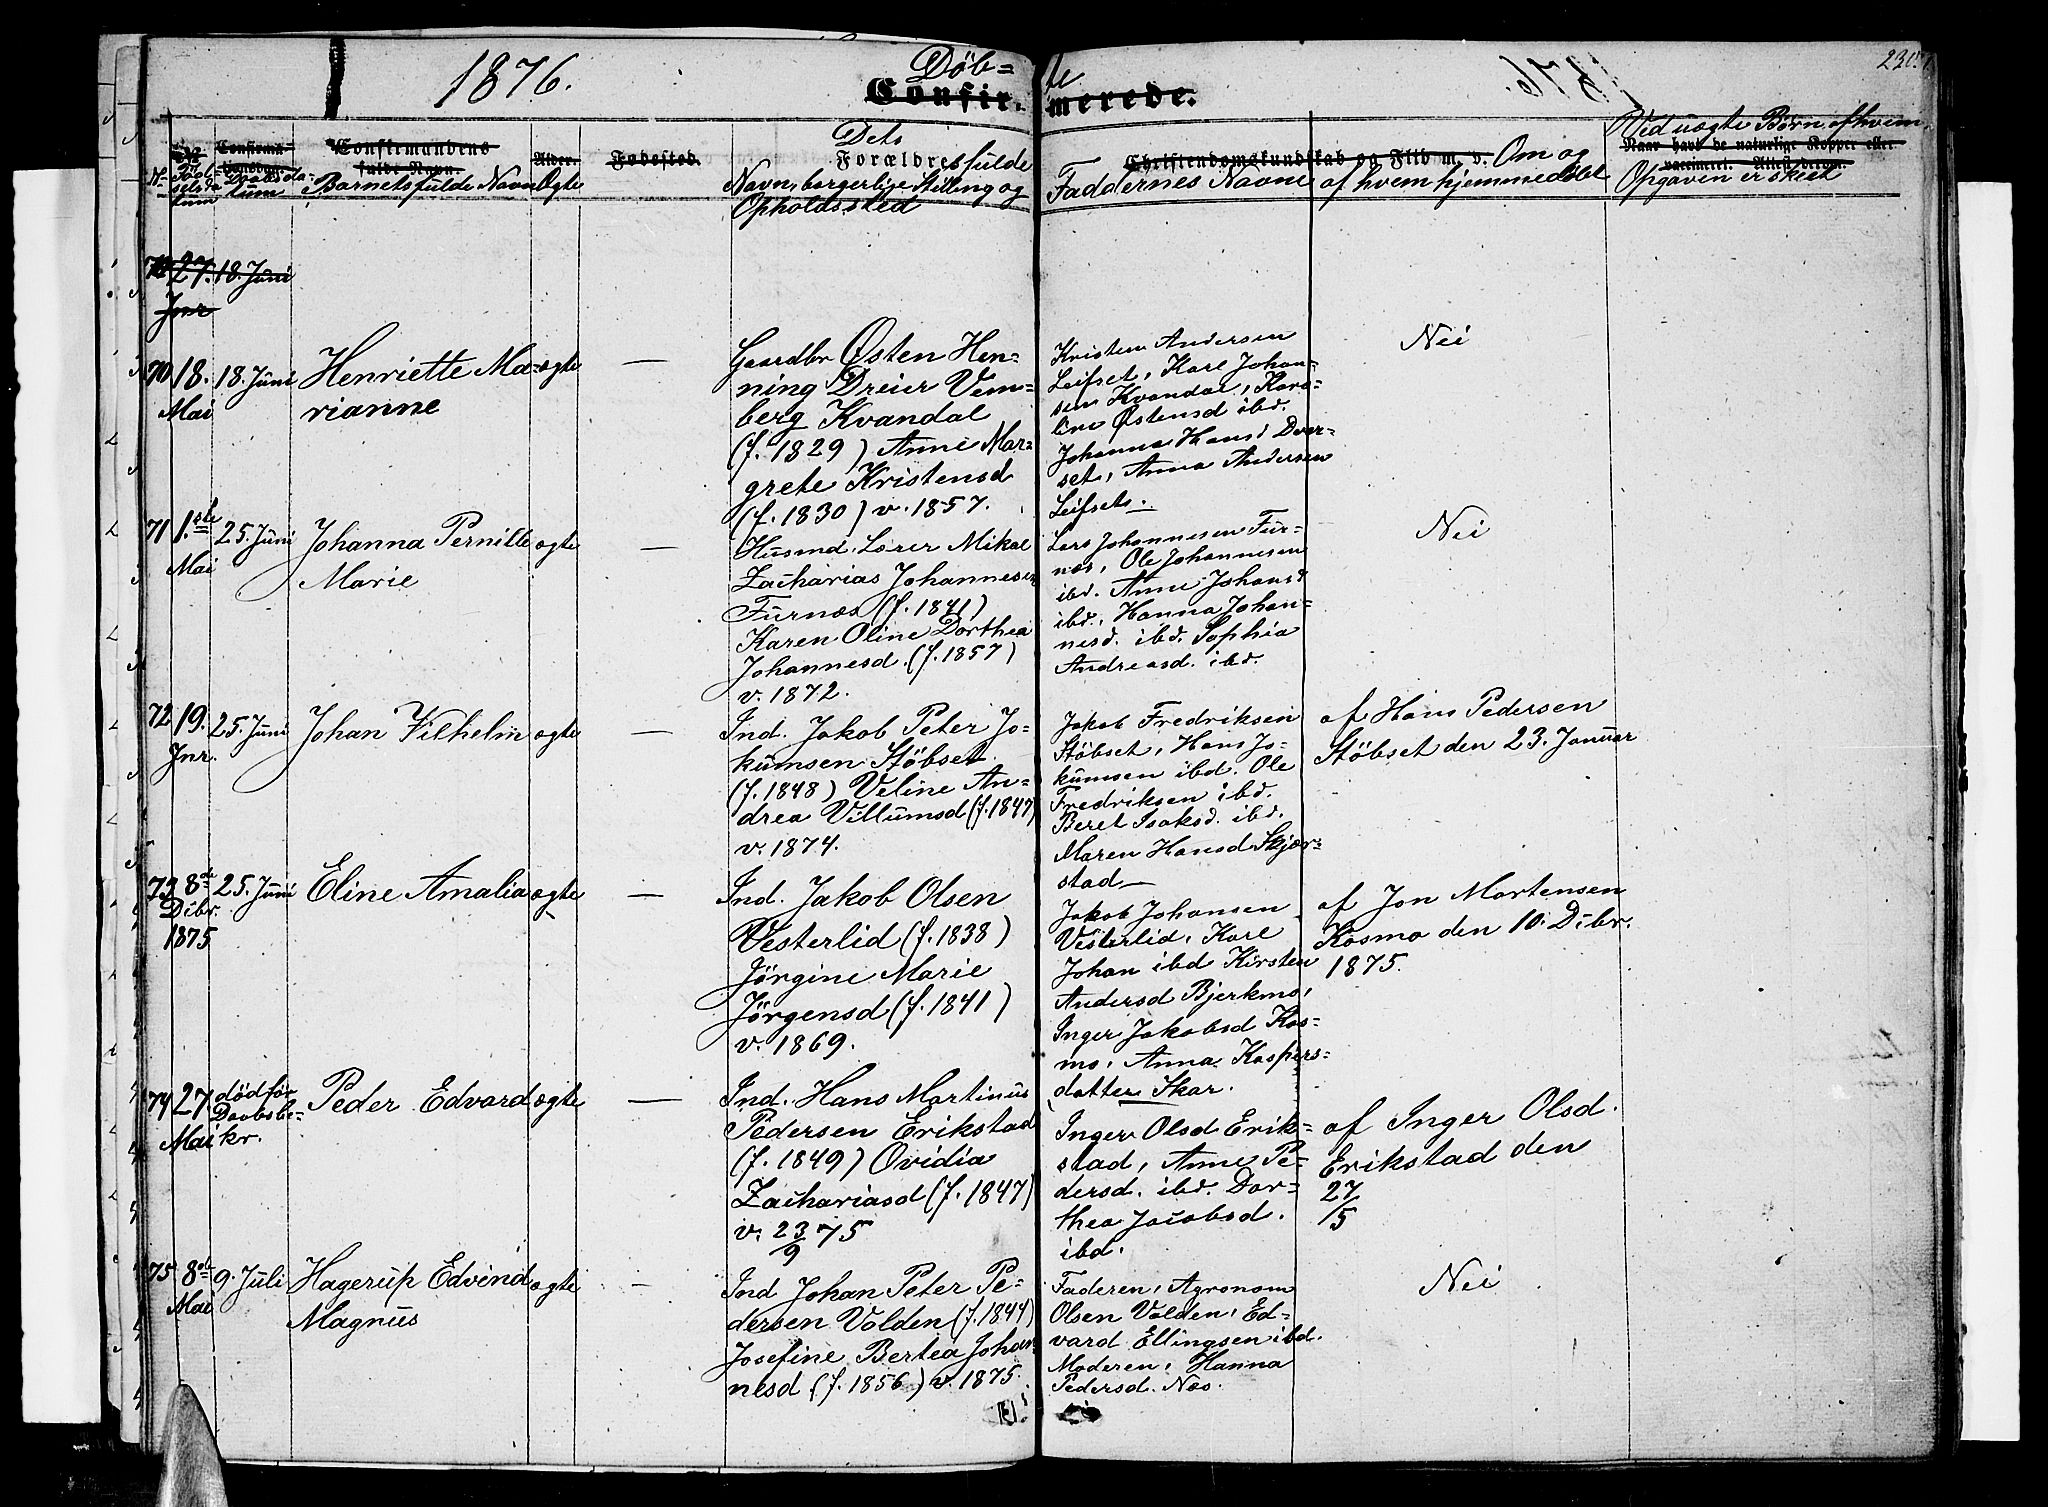 1876.
Döb= te
Confir- merede.
No
Födselsdatum
Confirmationsdag. Daabsdatum
Confirmandens fulde Navn. Barnets fulde Navn
Alder. Ægte
Fødested.
Dets Forældres fulde
Navn, borgerlige Stilling og
Opholdssted
Christendomskundskab og Flid m. v.
Faddernes Navne
Om og
af hvem hjemmedöbt
Ved uægte Börn af hvem
Naar havt de naturlige Kopper eller
vaccineret. Attest derom.
Opgaven er skeet
27. 18. Juni
Jnr
70 18. Mai
18. Juni
Henriette Ma=
rianne
ægte
—
Gaardbr Østen Hen=
ning Dreier Vem=
berg Kvandal
(f. 1829) Anne Mar=
grete Kristensd
(f. 1830) v. 1857.
Kristen Andersen
Leifset, Karl Johan=
sen Kvandal, Karo=
line Østensd ibd.
Johanna Hansd Dver=
set, Anna Andersen
Leifset.
Nei
71 1.ste Mai
25. Juni
Johanna Pernille
Marie
ægte
—
Husmd. Lorer Mikal
Zacharias Johannesen
Furnæs (f. 1841)
Karen Oline Dorthea
Johannesd. (f. 1857)
v. 1872.
Lars Johannesen Fur=
næs, Ole Johannesen
ibd. Anne Johansd
ibd. Hanna Johan=
nesd. ibd. Sophia
Andreasd. ibd.
Nei
72 19. Jnr.
25. Juni
Johan Vilhelm
ægte
—
Ind. Jakob Peter Jo=
kumsen Stöbset
(f. 1848) Veline An=
drea Villumsd (f. 1847)
v. 1874.
Jakob Fredriksen
Stöbset, Hans Jo=
kumsen ibd. Ole
Fredriksen ibd.
Beret Isaksd. ibd.
Maren Hansd Skjær=
stad—
af Hans Pedersen
Stöbset den 23. Januar
73 8de Dibr. 1875
25. Juni
Eline Amalia
ægte
—
Ind. Jakob Olsen
Vesterlid (f. 1838)
Jörgine Marie
Jörgensd (f. 1841)
v. 1869.
Jakob Johansen
Vesterlid, Karl
Johan ibd Kirsten
Andersd Bjerkmo,
Inger Jakobsd Kos=
mo, Anna Kaspers=
datter Skar.
af Jon Mortensen
Kosmo den 10. Dibr.
1875.
74 27 Mai
död för
Daabsbe=
kr.
Peder Edvard
ægte
—
Ind. Hans Martinus
Pedersen Erikstad
(f. 1849) Ovidia
Zachariasd (f. 1847)
v. 23/9 75
Inger Olsd Erik=
stad, Anne Pe=
dersd. ibd. Dor=
thea Jacobsd.
ibd.
af Inger Olsd.
Erikstad den
27/5
75 8de Mai
9. Juli
Hagerup Edvind
Magnus
ægte
—
Ind Johan Peter Pe=
dersen Volden (f. 1844)
Josefine Bertea Johan
nesd (f. 1856) v. 1875.
Faderen, Agronom
Olsen Volden, Ed=
vard Ellingsen ibd.
Moderen, Hanna
Pedersd. Næs.
Nei